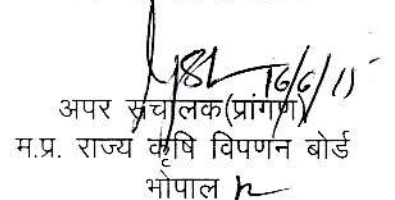 16/6/15
अपर संचालक(प्रांगण)
म.प्र. राज्य कृषि विपणन बोर्ड
भोपाल